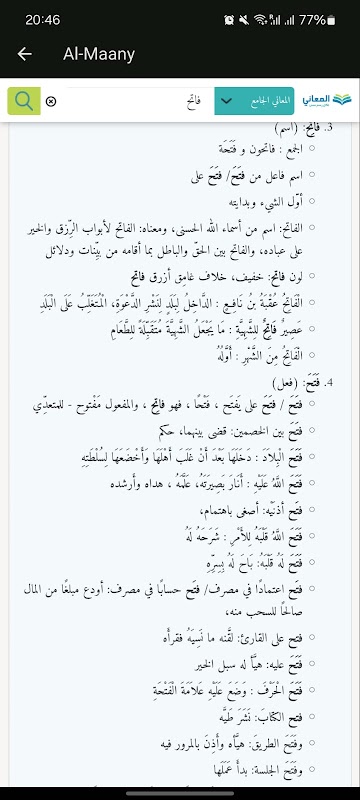 20:46
77%
Al-Maany
المعاني
المعاني الجامع
فاتح
3. فاتِح: (اسم)
الجمع : فاتحون و فَتَحَة
اسم فاعل من فتَحَ/ فتَحَ على
أوّل الشيء وبدايته
الفاتح: اسم من أسماء الله الحسنى، ومعناه: الفاتح لأبواب الرِّزق والخير
على عباده، والفاتح بين الحقّ والباطل بما أقامه من بيِّنات ودلائل
لون فاتح: خفيف، خلاف غامِق أزرق فاتح
الْفَاتِحُ عُقْبَةُ بْنُ نَافِعٍ : الدَّاخِلُ لِبَلدٍ لِنَشْرِ الدَّعْوَةِ، الْمُتَغَلِّبُ عَلَى الْبَلَدِ
عَصِيرٌ فَاتِحٌ لِلشَّهِيَّةِ : مَا يَجْعَلُ الشَّهِيَّةَ مُتَقَبِّلَةً لِلطَّعَامِ
الْفَاتِحُ مِنَ الشَّهْرِ : أَوَّلُهُ
4. فَتَحَ: (فعل)
فتَحَ / فتَحَ على يَفتَح ، فَتْحًا ، فهو فاتِح ، والمفعول مَفْتوح - للمتعدِّي
فَتَحَ بين الخصمين: قضى بينهما، حكم
فَتَحَ الْبِلاَدَ : دَخَلَهَا بَعْدَ أَنْ غَلَبَ أَهْلَهَا وَأَخْضَعَهَا لِسُلْطَتِهِ
فَتَحَ اللَّهُ عَلَيْهِ : أَنَارَ بَصِيرَتَهُ، عَلَّمَهُ ، هداه وأرشده
فتَح أذنَيْه: أصغى باهتمام،
فَتَح اللَّهُ قَلْبَهُ لِلأَمْرِ : شَرَحَهُ لَهُ
فَتَحَ لَهُ قَلْبَهُ: بَاحَ لَهُ بِسِرِّهِ
فتَح اعتمادًا في مصرف/ فتَح حسابًا في مصرف: أودع مبلغًا من المال
صالحًا للسحب منه،
فتح على القارئ: لقَّنه ما نَسِيَهُ فقرأَه
فَتَحَ عليه: هيَّأ له سبل الخير
فَتَحَ الْحَرْفَ : وَضَعَ عَلَيْهِ عَلاَمَةَ الْفَتْحَةِ
فتح الكتابَ: نَشَرَ طَيَّه
وفَتَحَ الطريقَ: هيَّأه وأَذِنَ بالمرور فيه
وفَتَحَ الجلسةَ: بدأَ عَمَلَها